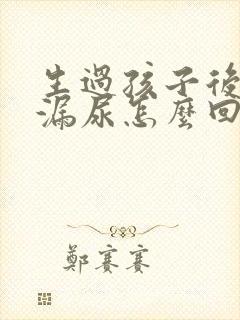 生過孩子後
漏尿怎麼回
鄭賽賽